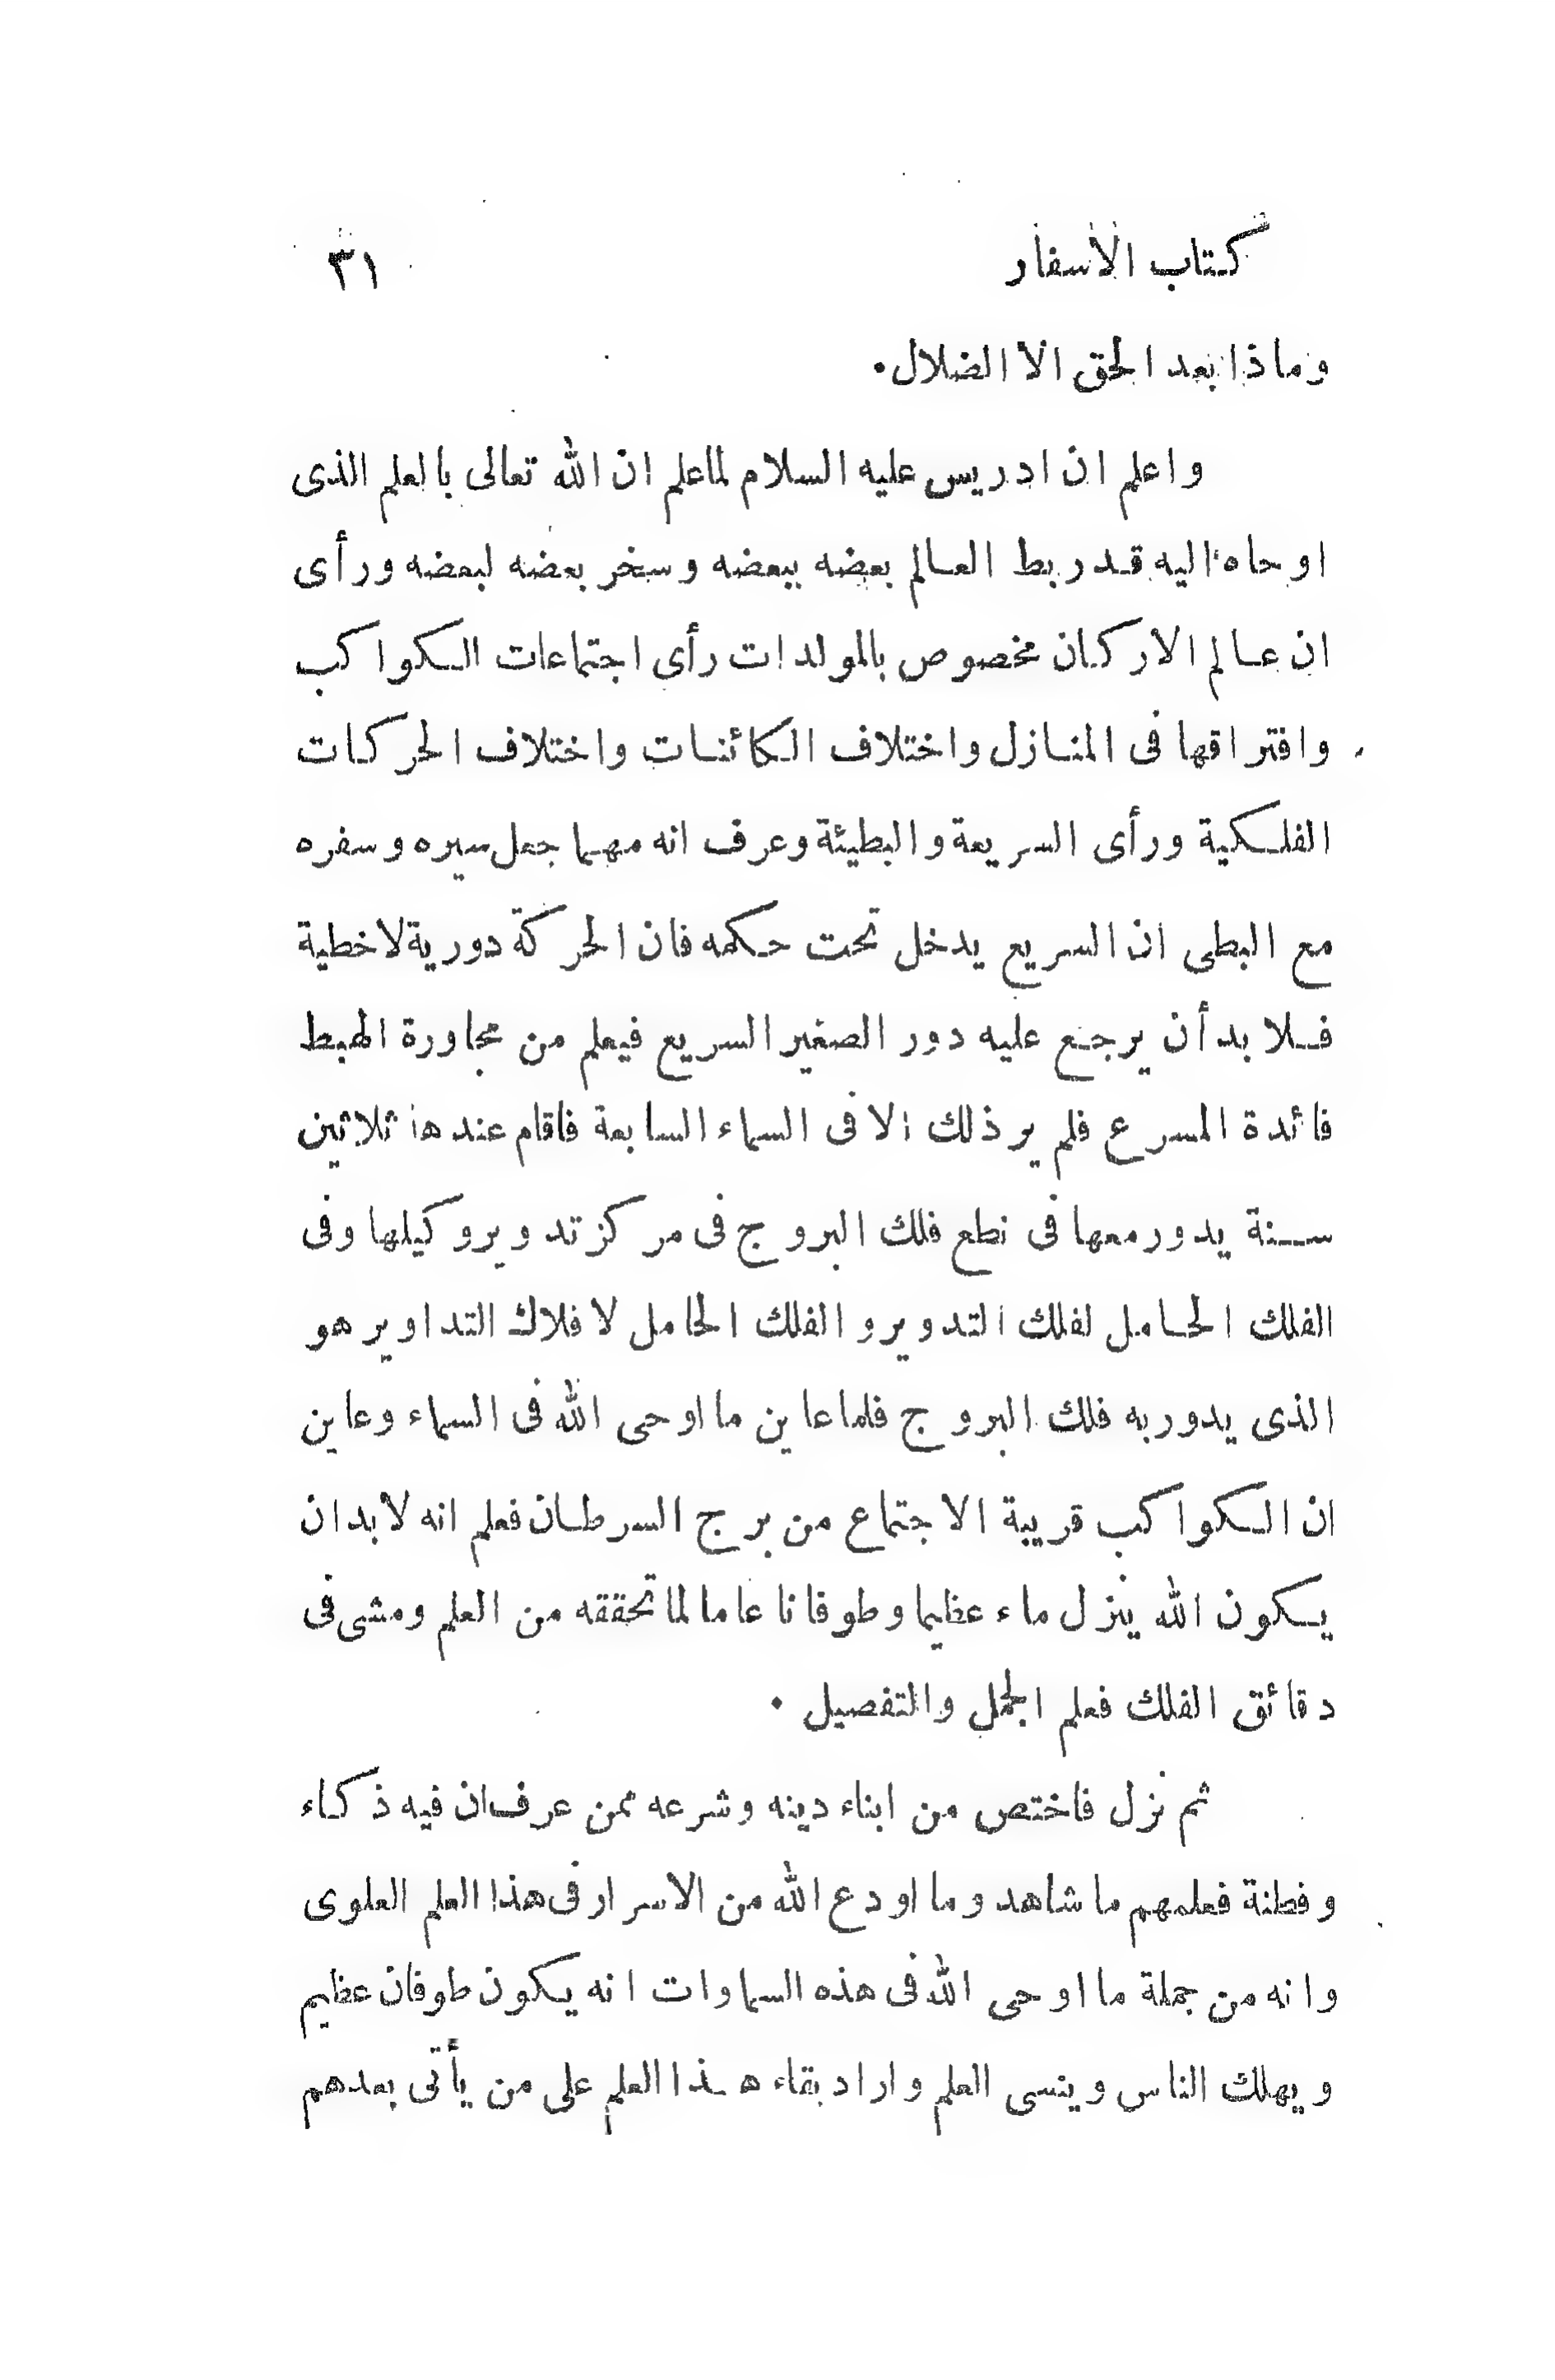 كتاب الاسفار ٣١
وماذا بعد الحق الا الضلال.
واعلم ان ادريس عليه السلام لما علم ان الله تعالى بالعلم الذى
اوحاه اليه قد ربط العالم بعضه ببعضه وسخر بعضه لبعضه ورأى
ان عالم الاركان مخصوص بالمولدات رأى اجتماعات الكواكب
وافتراقها فى المنازل واختلاف الكائنات واختلاف الحركات
الفلكية ورأى السريعة والبطيئة وعرف انه مهما جعل سيره وسفره
مع البطى ان السريع يدخل تحت حكمه فان الحركة دورية لا خطية
فلا بد أن يرجع عليه دور الصغير السريع فيعلم من مجاورة المهبط
فائدة المسرع فلم ير ذلك الا فى السماء السابعة فاقام عندها ثلاثين
سنة يدور معها فى نطع فلك البروج فى مركز تدوير وكيلها وفى
الفلك الحامل لفلك التدوير والفلك الحامل لا فلاك التداوير هو
الذى يدور به فلك البروج فلما عاين ما اوحى الله فى السماء وعاين
ان الكواكب قريبة الاجتماع من برج السرطان فعلم انه لا بد ان
يكون الله ينزل ماء عظيما وطوفانا عاما لما تحققه من العلم ومشى فى
دقائق الفلك فعلم الجمل والتفصيل .
ثم نزل فاختص من ابناء دينه وشرعه ممن عرف ان فيه ذكاء
وفطنة فعلمهم ما شاهد وما اودع الله من الاسرار فى هذا العلم العلوى
وانه من جملة ما اوحى الله فى هذه السماوات انه يكون طوفان عظيم
ويهلك الناس وينسى العلم واراد بقاء هذا العلم على من يأتى بعدهم